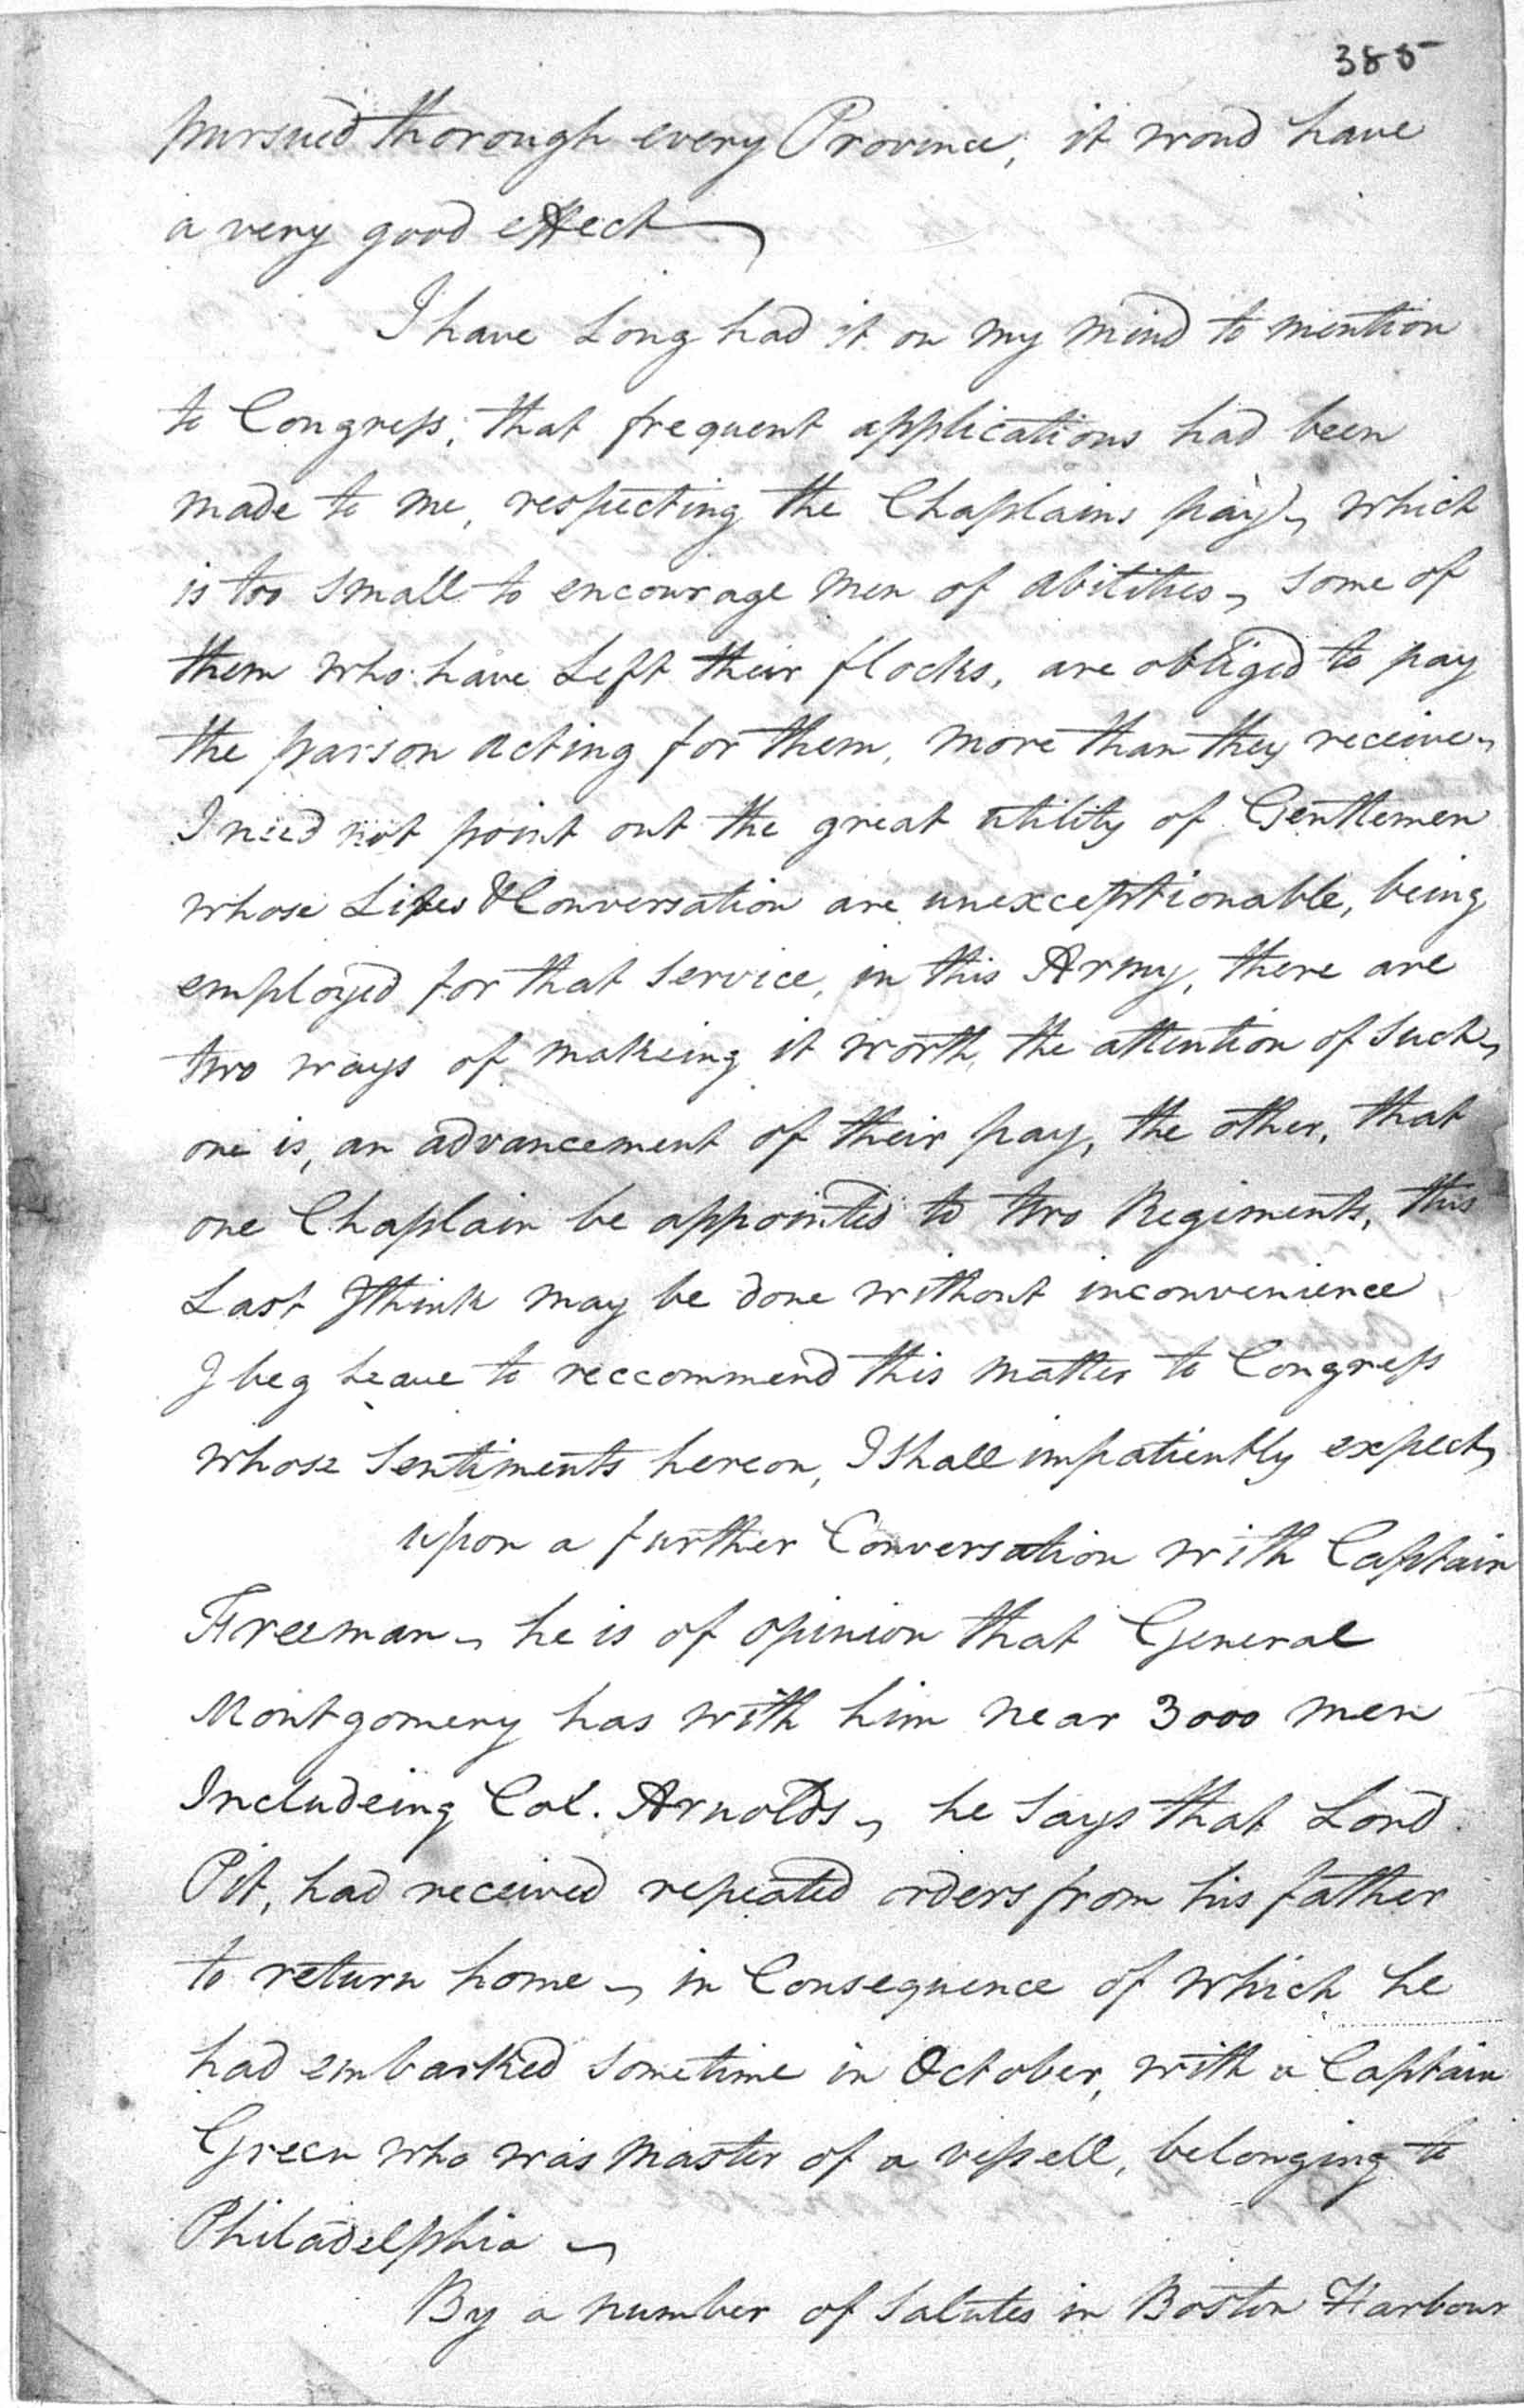 385
pursued thorough every Province, it woud have
a very good effect
I have Long had it on my mind to mention
to Congress, that frequent applications had been
made to me, respecting the Chaplains pay, which
is too Small to encourage men of Abilities, Some of
them who have Left their flocks, are obliged to pay
the parson acting for them, more than they receive,
I need not point out the great utility of Gentlemen
whose Lives & Conversation are unexceptionable, being
employed for that Service, in this Army, there are
two ways of makeing it worth, the attention of Such,
one is, an advancement of their pay, the other, that
one Chaplain be appointed to two Regiments, this
Last I think may be done without inconvenience
I beg Leave to reccommend this matter to Congress
whose Sentiments hereon, I Shall impatiently expect,
upon a further Conversation with Captain
Freeman, he is of opinion that General
Montgomery has with him near 3000 men
Includeing Col. Arnolds, he Says that Lord
Pit, had received repeated orders from his father
to return home, in Consequence of which he
had embarked Sometime in October, with a Captain
Green who was master of a vessell, belonging to
Philadelphia
By a number of Salutes in Boston Harbour